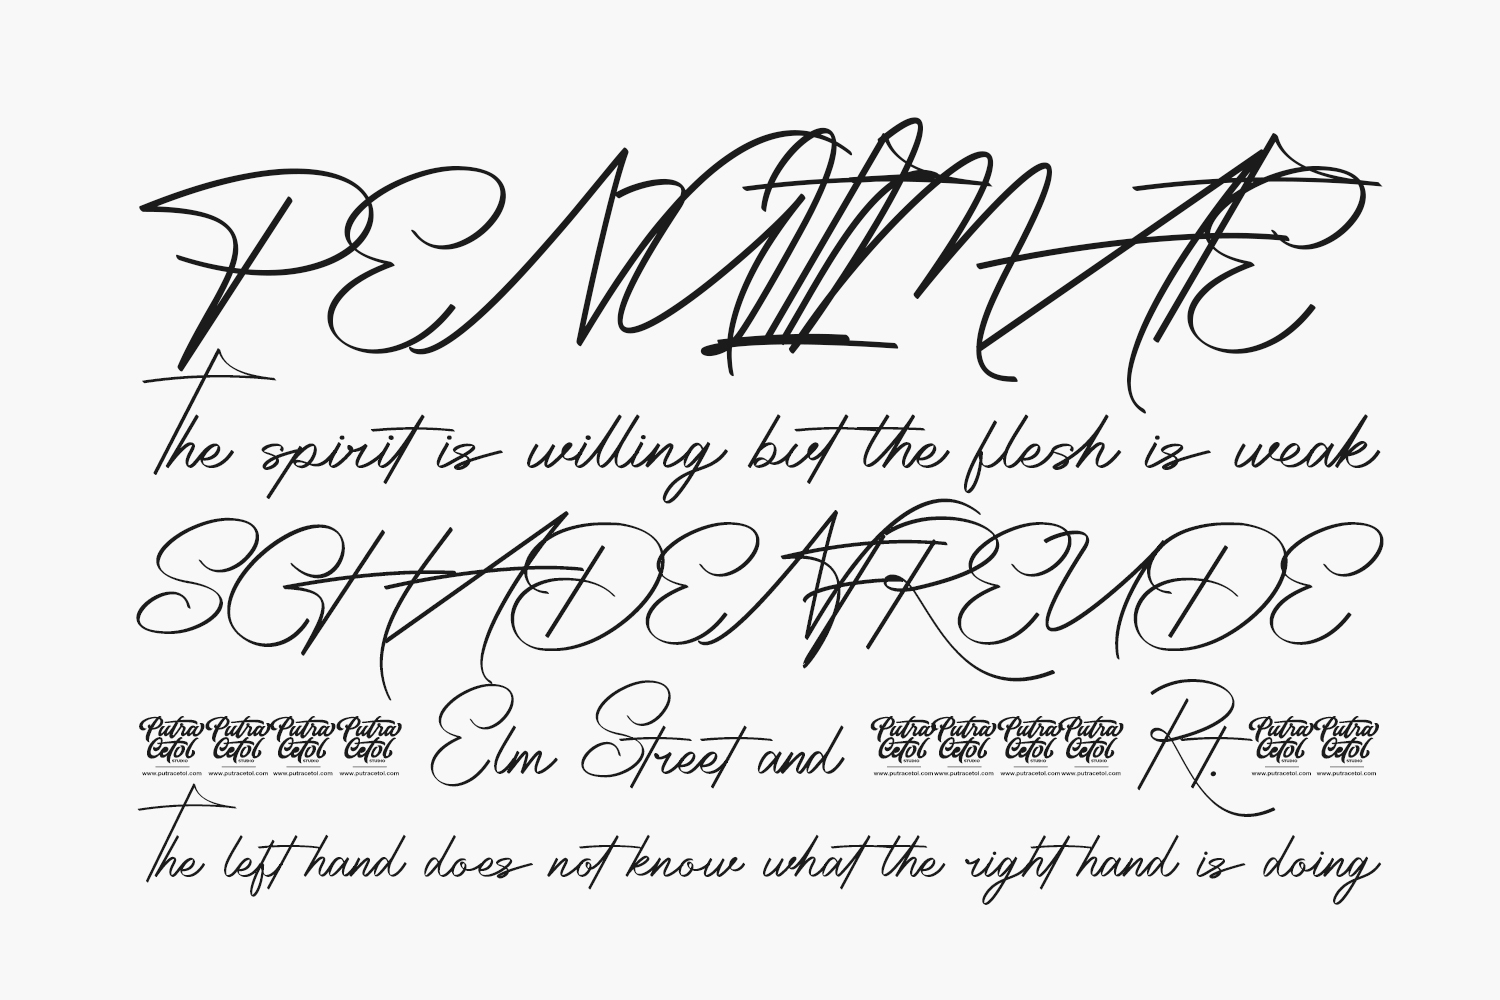 PENULTIMATE
The spirit is willing but the flesh is weak
SCHADENFREUDE
Putra Putra Putra Putra Elm Street and Putra Putra Putra Putra Rt. Putra Putra
Cetol Cetol Cetol Cetol Cetol Cetol Cetol Cetol Cetol Cetol
STUDIO STUDIO STUDIO STUDIO STUDIO STUDIO STUDIO STUDIO STUDIO STUDIO
www.putracetol.com www.putracetol.com www.putracetol.com www.putracetol.com www.putracetol.com www.putracetol.com www.putracetol.com www.putracetol.com www.putracetol.com www.putracetol.com
The left hand does not know what the right hand is doing